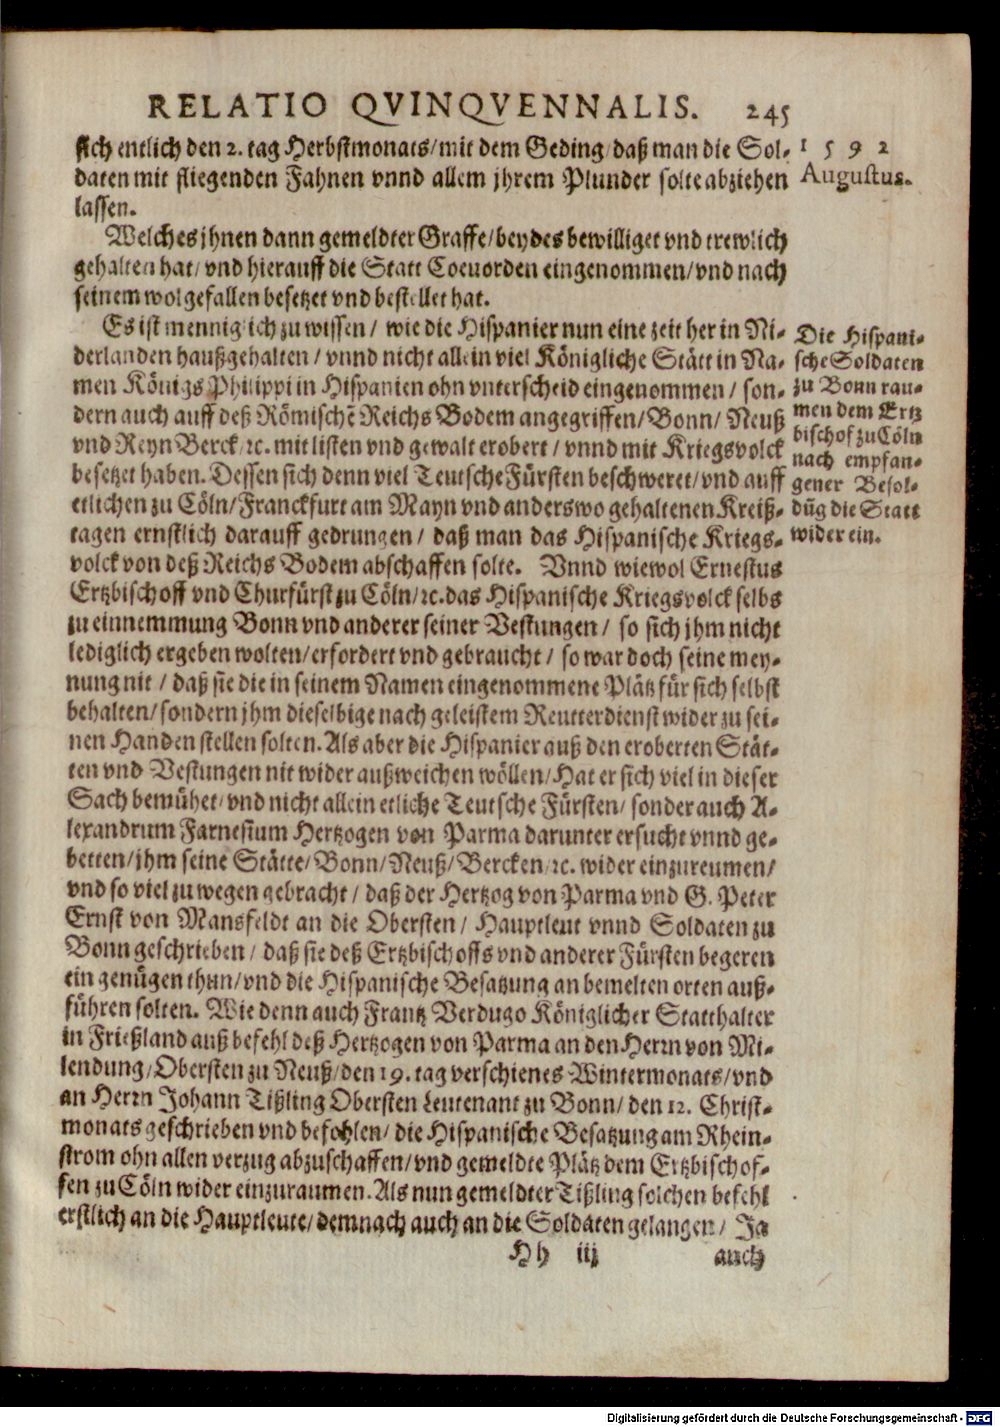 RELATIO QVINQVENNALIS. 245
sich entlich den 2. tag Herbstmonats/mit dem Geding/daß man die Sol-
daten mit fliegenden Fahnen vnnd allem jhrem Plunder solte abziehen
lassen.
1592
Augustus.
Welches jhnen dann gemeldter Graffe/beydes bewilliget vnd trewlich
gehalten hat/vnd hierauff die Statt Coeuorden eingenommen/vnd nach
seinem wolgefallen besetzet vnd bestellet hat.
Es ist mennigiich zu wissen/ wie die Hispanier nun eine zeit her in Ni-
derlanden haußgehalten/vnnd nicht allein viel Königliche Stätt in Na-
men Königs Philippi in Hispanien ohn vnterscheid eingenommen/ son-
dern auch auff deß Römischē Reichs Bodem angegriffen/Bonn/ Neuß
vnd Reyn Berck/ꝛc. mit listen vnd gewalt erobert/ vnnd mit Kriegsvolck
besetzet haben. Dessen sich denn viel Teutsche Fürsten beschweret/vnd auff
etlichen zu Cöln/Franckfurt am Mayn vnd anderswo gehaltenen Kreiß-
tagen ernstlich darauff gedrungen/ daß man das Hispanische Kriegs-
volck von deß Reichs Bodem abschaffen solte. Vnnd wiewol Ernestus
Ertzbischoff vnd Churfürst zu Cöln/ꝛc. das Hispanische Kriegsvolck selbs
zu einnemmung Bonn vnd anderer seiner Vestungen/ so sich jhm nicht
lediglich ergeben wolten/erfordert vnd gebraucht/ so war doch seine mey-
nung nit/ daß sie die in seinem Namen eingenommene Plätz für sich selbst
behalten/sondern jhm dieselbige nach geleistem Reutterdienst wider zu sei-
nen Handen stellen solten. Als aber die Hispanier auß den eroberten Stät-
ten vnd Vestungen nit wider außweichen wöllen/Hat er sich viel in dieser
Sach bewühet/vnd nicht allein etliche Teutsche Fürsten/ sonder auch A-
lexandrum Farnesium Hertzogen von Parma darunter ersucht vnnd ge-
betten/jhm seine Stätte/Bonn/Neuß/Bercken/ꝛc. wider einzureumen/
vnd so viel zu wegen gebracht/ daß der Hertzog von Parma vnd G. Peter
Ernst von Mansfeldt an die Obersten/ Hauptleut vnnd Soldaten zu
Bonn geschrieben/ daß sie deß Ertzbischoffs vnd anderer Fürsten begeren
ein genügen thun/vnd die Hispanische Besatzung an bemelten orten auß-
führen solten. Wie denn auch Frantz Verdugo Königlicher Statthalter
in Frießland auß befehl deß Hertzogen von Parma an den Herrn von Mi-
lendung/Obersten zu Neuß/den 19. tag verschienes Wintermonats/vnd
an Herrn Johann Tißling Obersten Leutenant zu Bonn/ den 12. Christ-
monats geschrieben vnd befohlen/die Hispanische Besatzung am Rhein-
strom ohn allen verzug abzuschaffen/vnd gemeldte Plätz dem Ertzbischof-
fen zu Cöln wider einzuraumen. Als nun gemeldter Tißling solchen befehl
erstlich an die Hauptleute/demnach auch an die Soldaten gelangen/ Ja
Die Hispani-
sche Soldaten
zu Bonn rau-
men dem Ertz
bischof zu Cöln
nach empfan-
gener Besol-
dūg die Statt
wider ein.
Hh iij auch
Digitalisierung gefördert durch die Deutsche Forschungsgemeinschaft - DFG